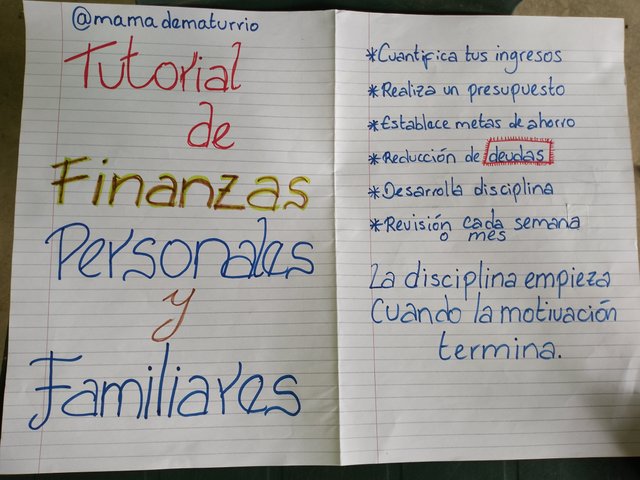 @mamadematurrio
Tutorial
de
Finanzas
Personales
y
Familiares
*Cuantifica tus ingresos
*Realiza un presupuesto
*Establace metas de ahorro
*Reducción de deudas
*Desarrolla disciplina
*Revisión cada semana
o mes
La disciplina empieza
Cuando la motivación
termina.